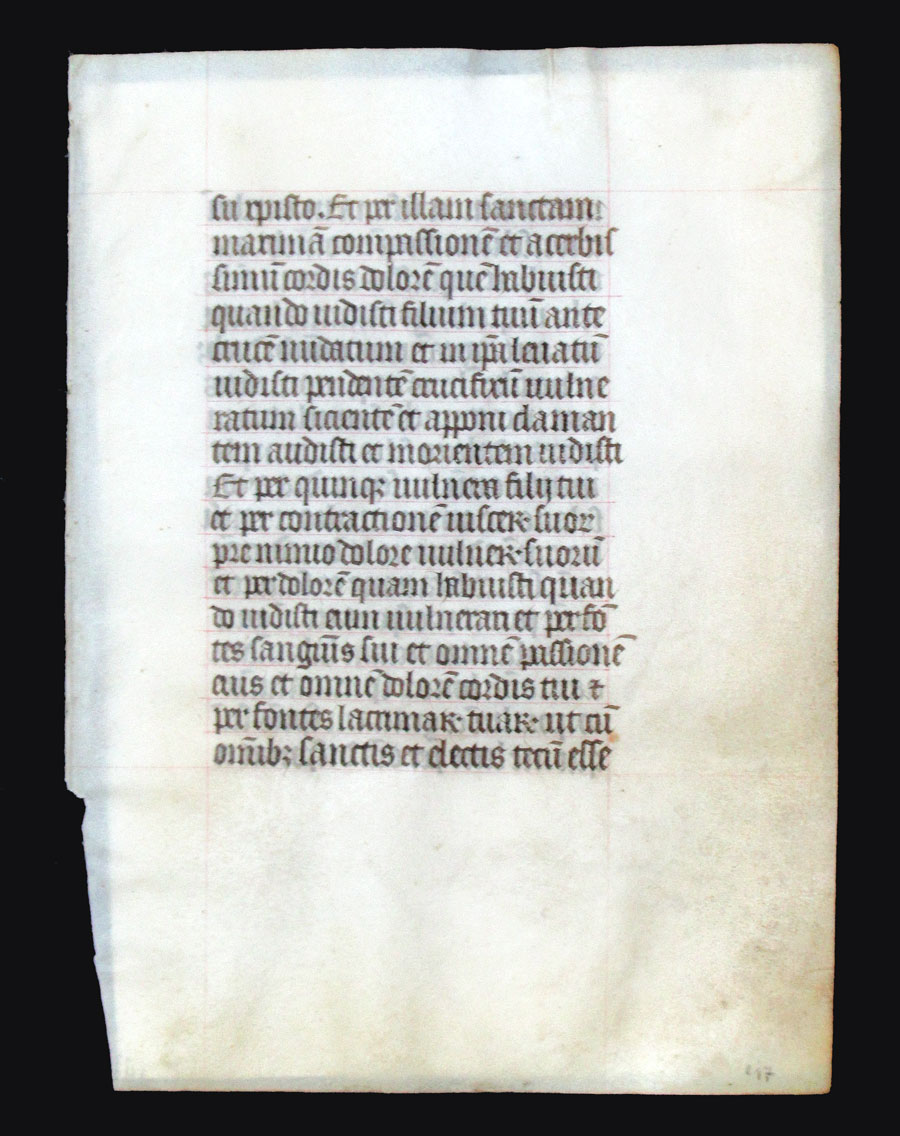 su xpisto. Et per illam sanctam
maximā compassionē et acerbis
simū cordis dolorē quē habuisti
quando uidisti filium tuū ante
crucē nudatum et in ip̄a leuatū
uidisti pendentē crucifixū uulne
ratum sicientē et apponi claman
tem audisti et morientem uidisti
Et per quinqꝫ uulnera filij tui
et per contractionē uisceꝝ suoꝝ
pre nimio dolore uulneꝝ suorū
et per dolorē quam habuisti quan
do uidisti eum uulnerari et per fō
tes sanguīs sui et omnē passionē
eius et omnē dolorē cordis tui ⁊
per fontes lacrimaꝝ tuaꝝ ut cū
omībꝫ sanctis et electis tecū esse